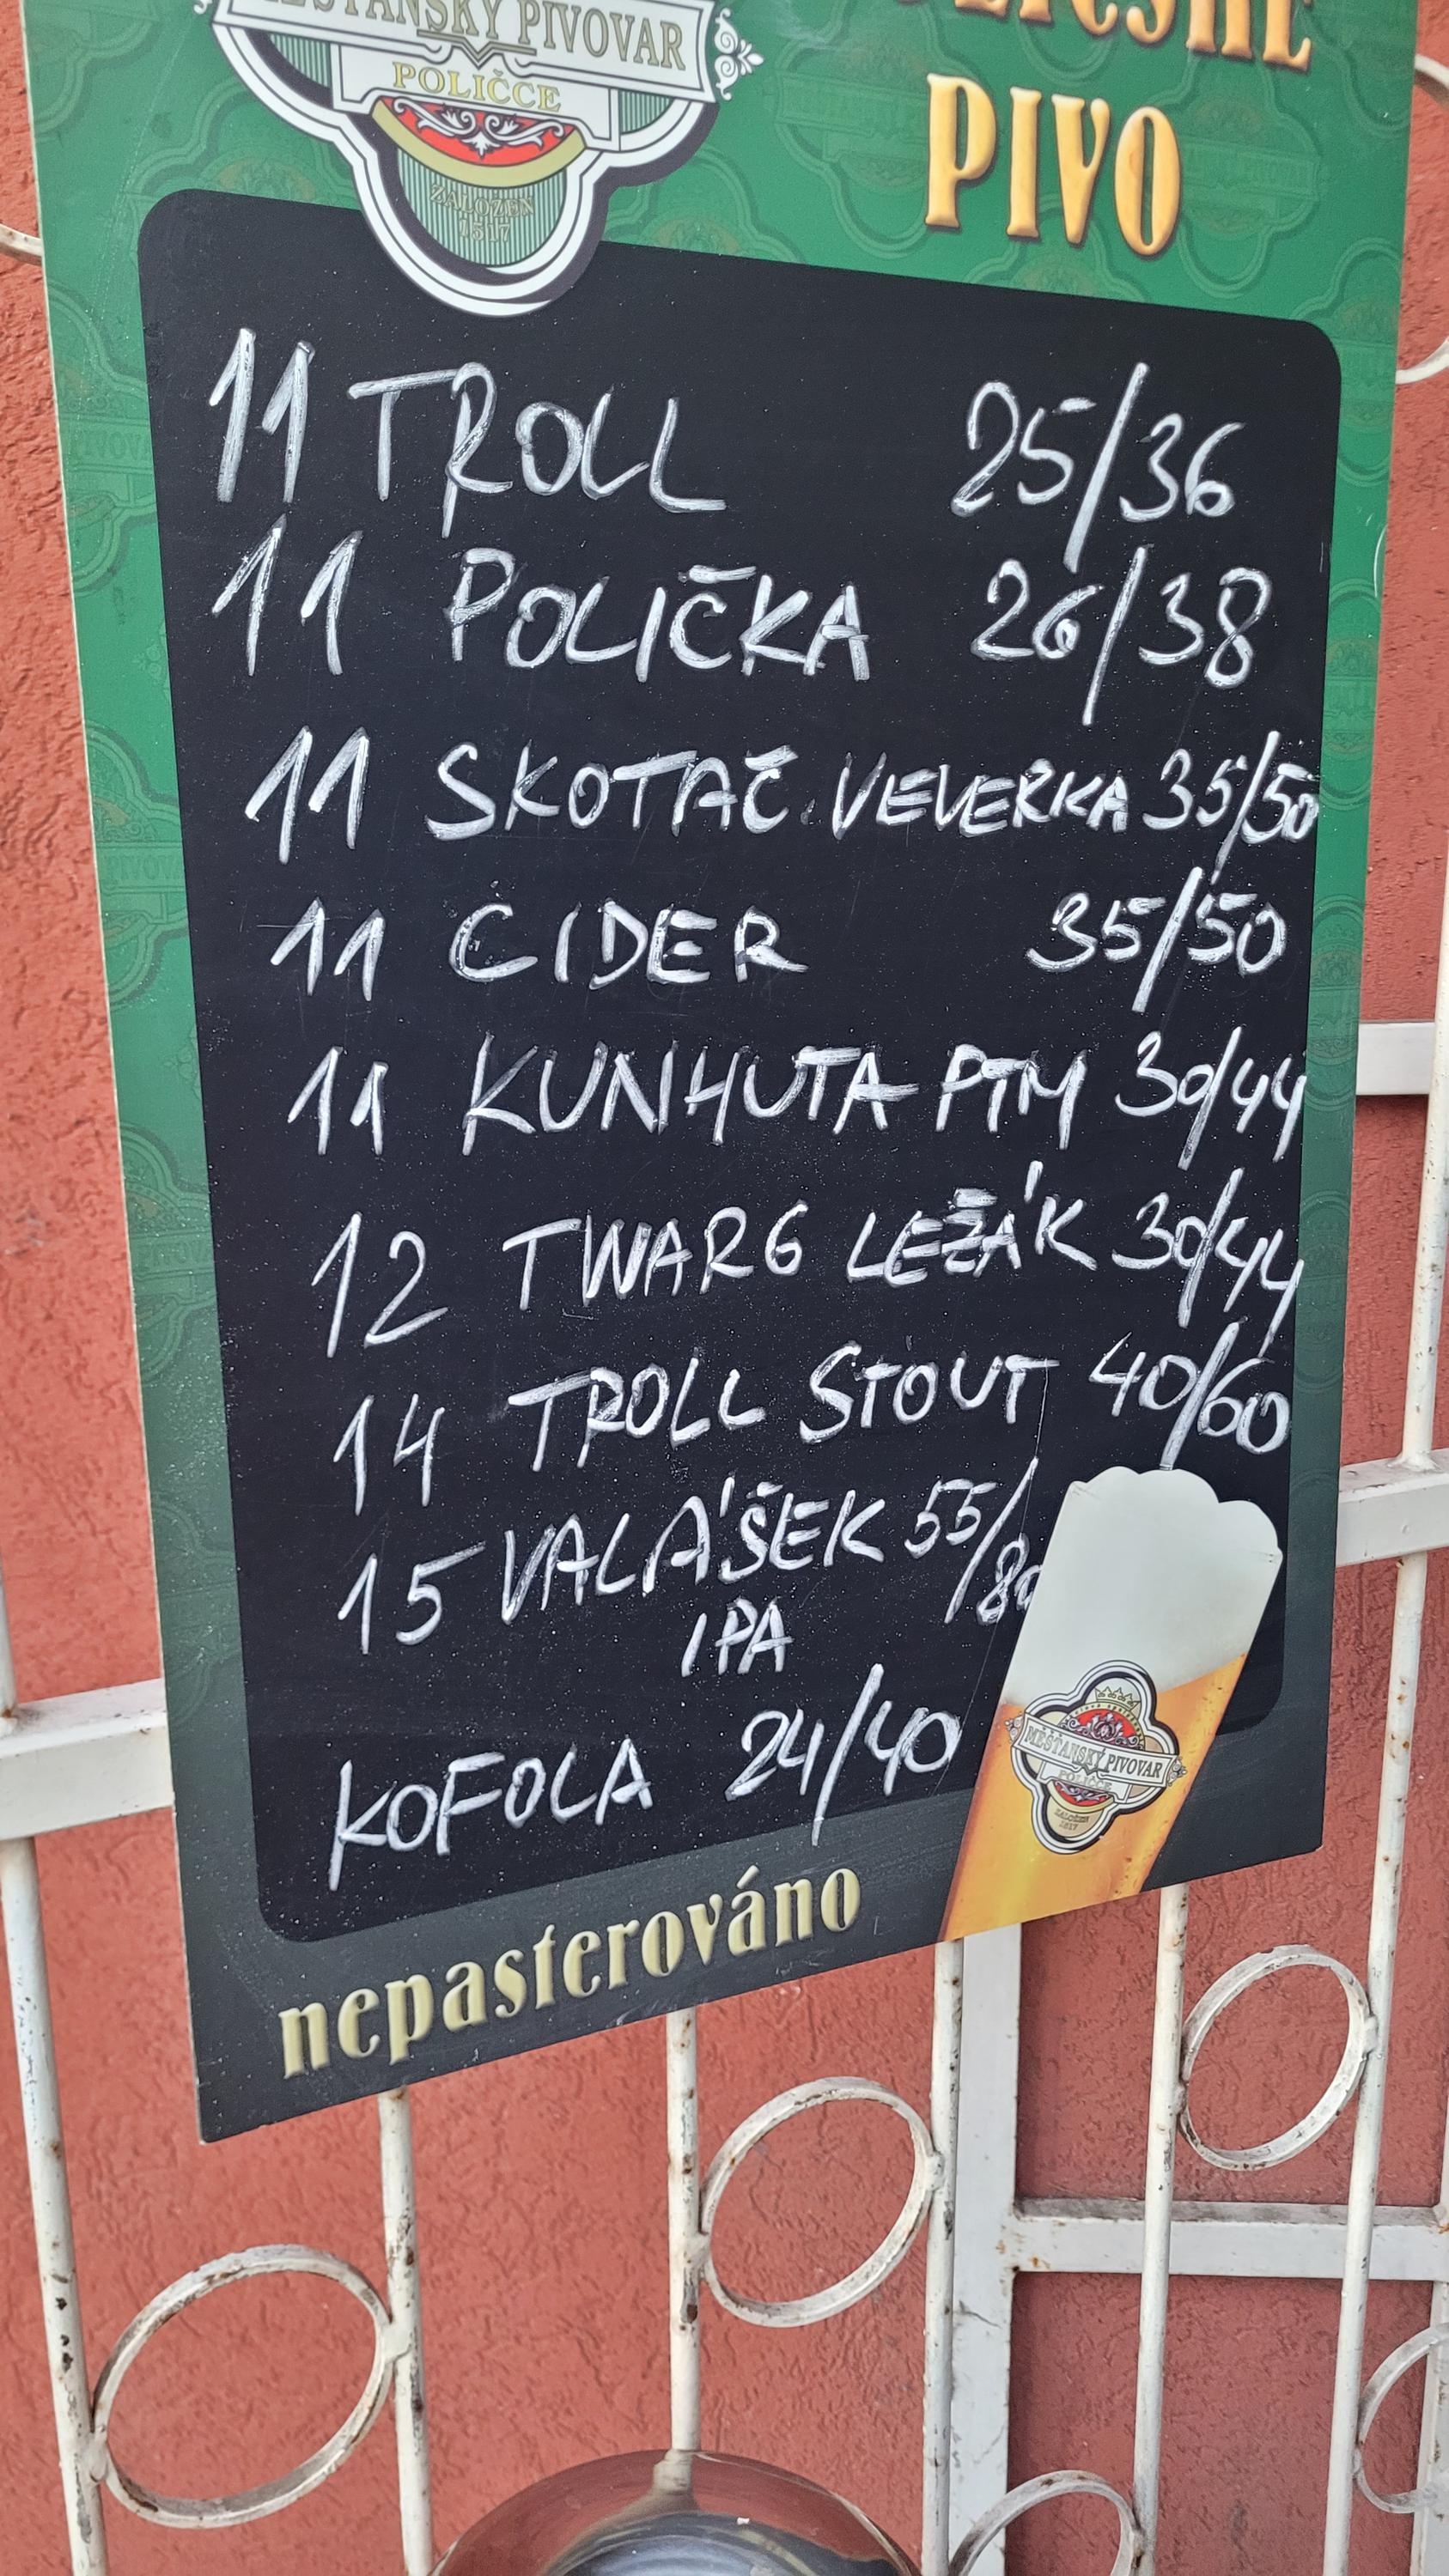 MĚŠŤANSKÝ PIVOVAR
POLIČCE
ZALOŽEN
1517
PIVO
11 TROLL 25/36
11 POLIČKA 26/38
11 SKOTAČ. VEVERKA 35/50
11 CIDER 35/50
11 KUNHUTA PTM 30/44
12 TWARG LEŽÁK 30/44
14 TROLL STOUT 40/60
15 VALÁŠEK 55/80
IPA
KOFOLA 24/40
MĚŠŤANSKÝ PIVOVAR
POLIČCE
ZALOŽEN
1517
nepasterováno